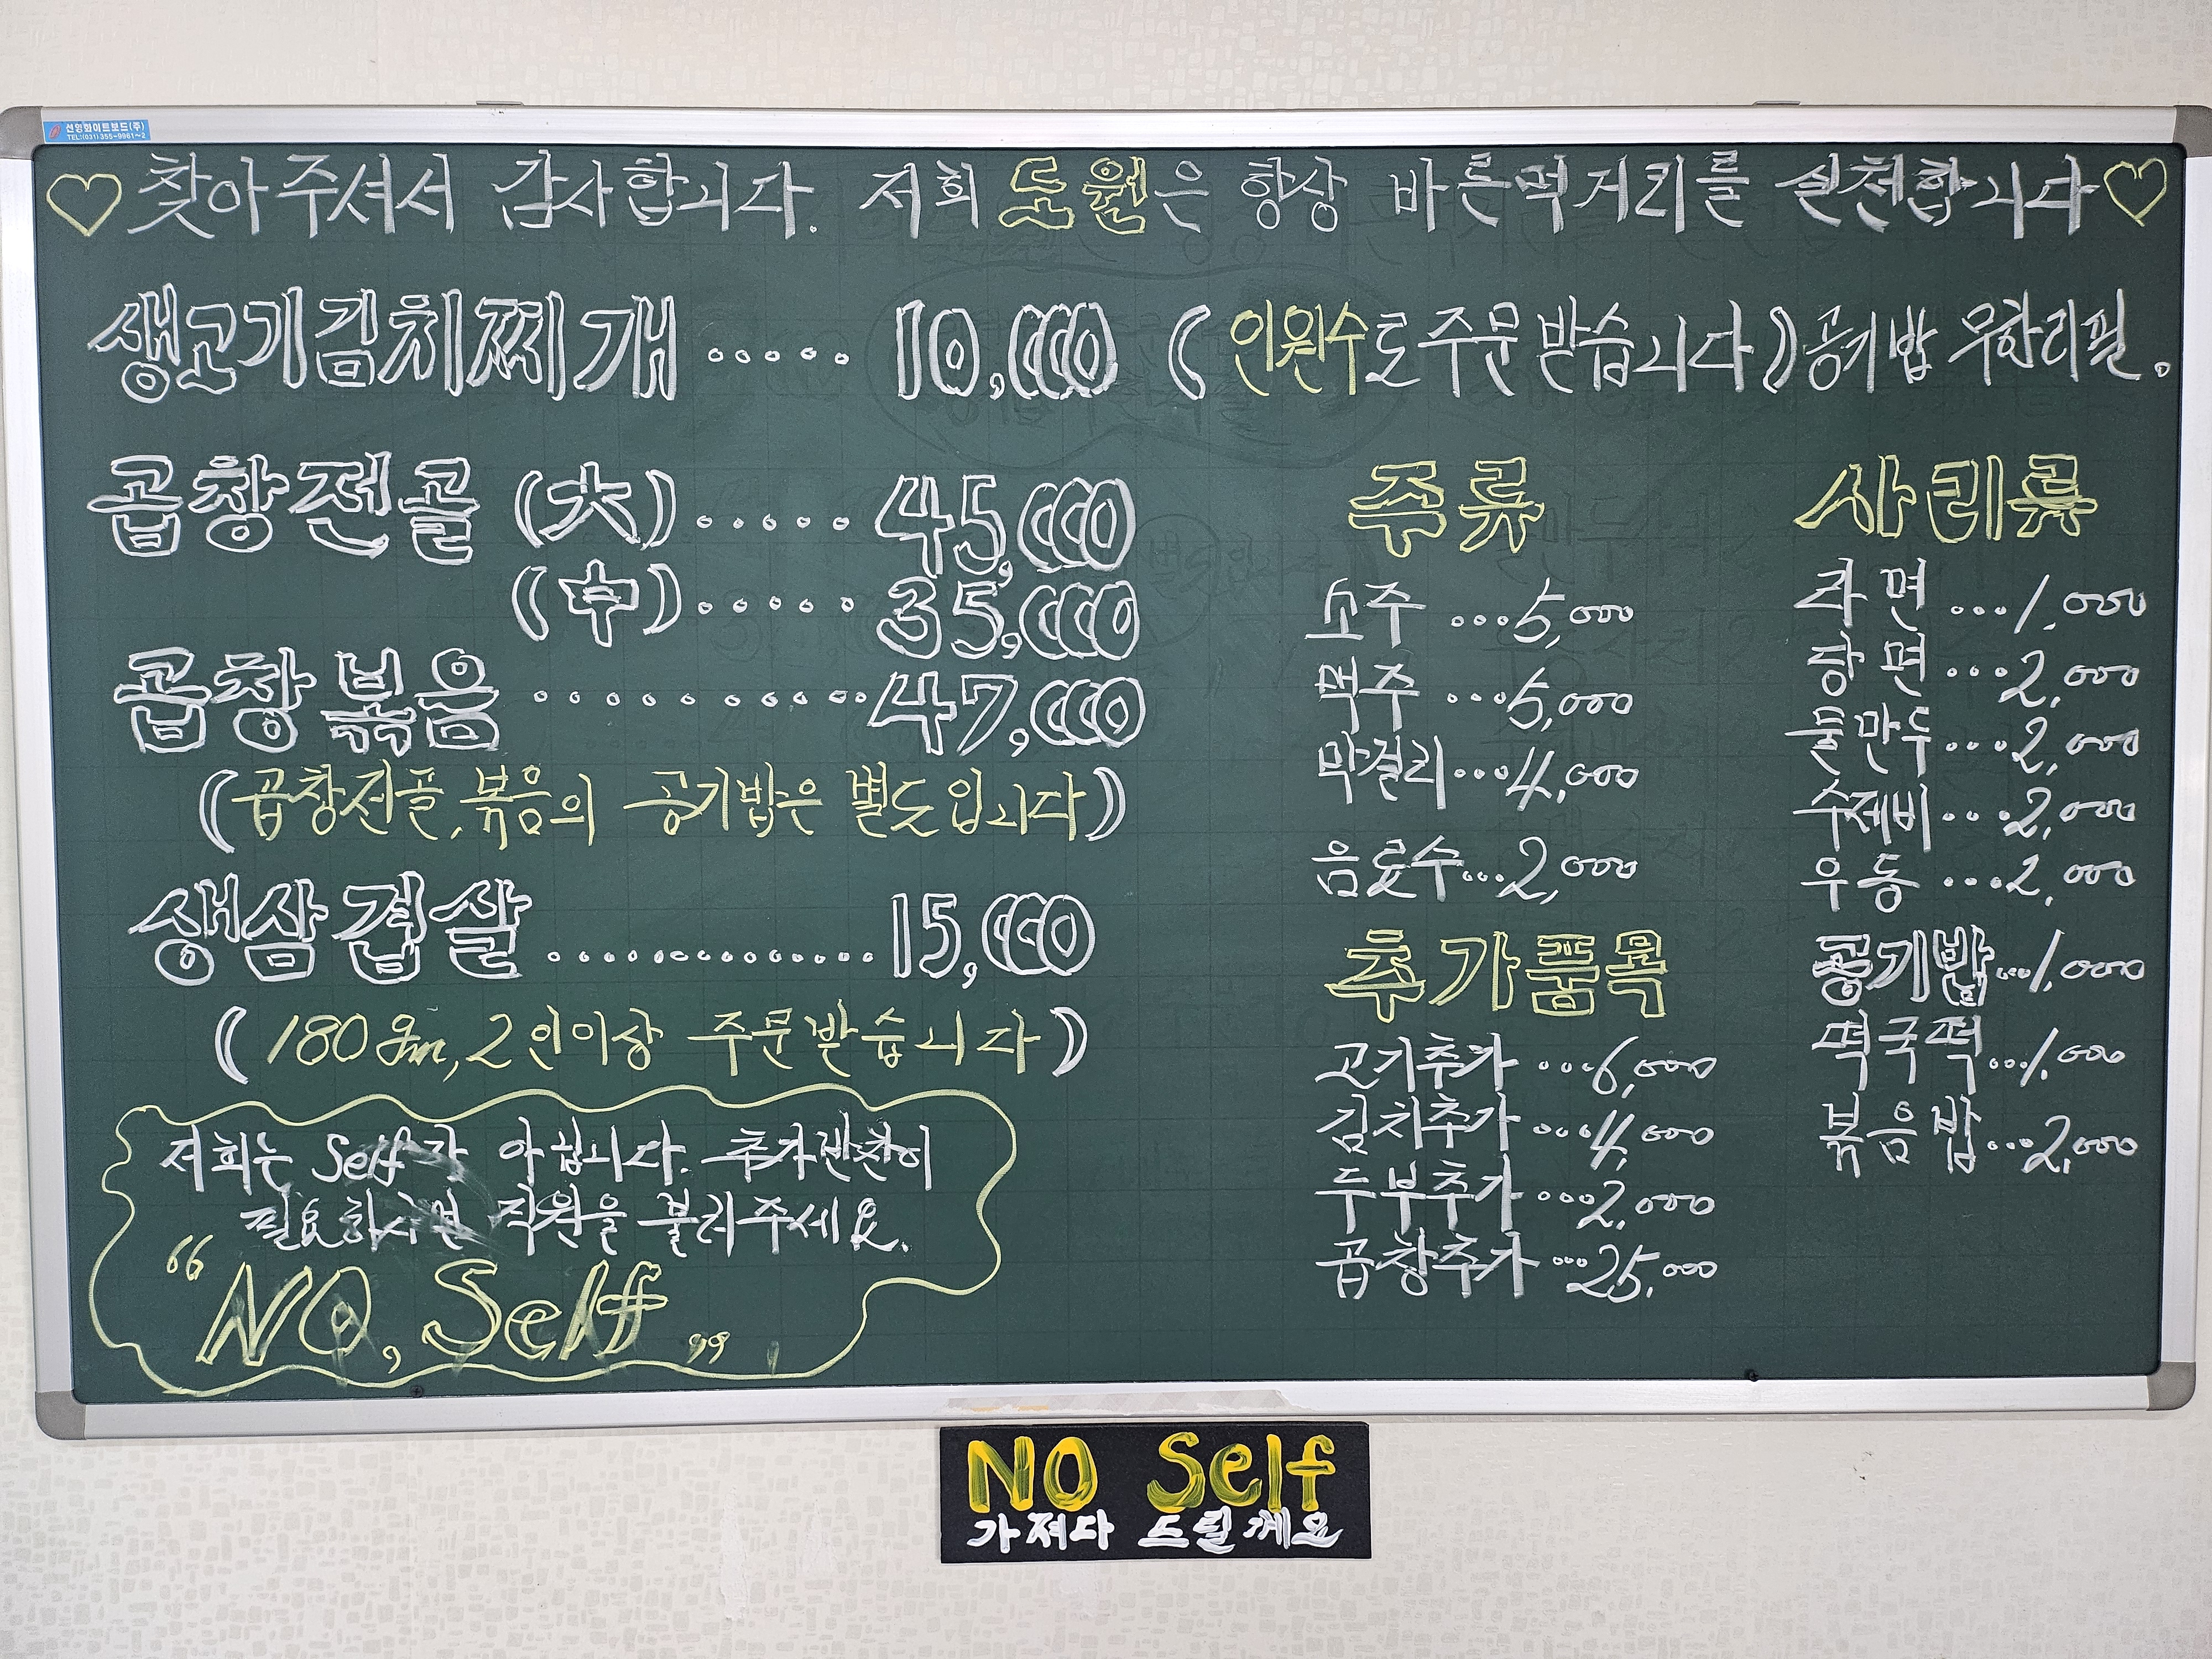 선영화이트보드(주)
TEL:(031)355-9961~2
♡찾아주셔서 감사합니다. 저희 도원은 항상 바른먹거리를 실천합니다♡
생고기김치찌개 ..... 10,000 (인원수로주문받습니다) 공기밥 무한리필.
곱창전골 (大)..... 45,000
(中)..... 35,000
곱창볶음 ...........47,000
(곱창전골,볶음의 공기밥은 별도입니다)
생삼겹살 ...............15,000
(180gm,2인이상 주문받습니다)
저희는 Self가 아닙니다. 추가반찬이
필요하시면 직원을 불러주세요.
"NO, Self"
주류
소주 ...5,000
맥주 ...5,000
막걸리...4,000
음료수...2,000
추가품목
고기추가 ...6,000
김치추가 ...4,000
두부추가 ...2,000
곱창추가 ...25,000
사리류
라면 ...1,000
당면 ...2,000
물만두...2,000
수제비...2,000
우동 ...2,000
공기밥...1,000
떡국떡...1,000
볶음밥...2,000
NO Self
가져다 드릴께요